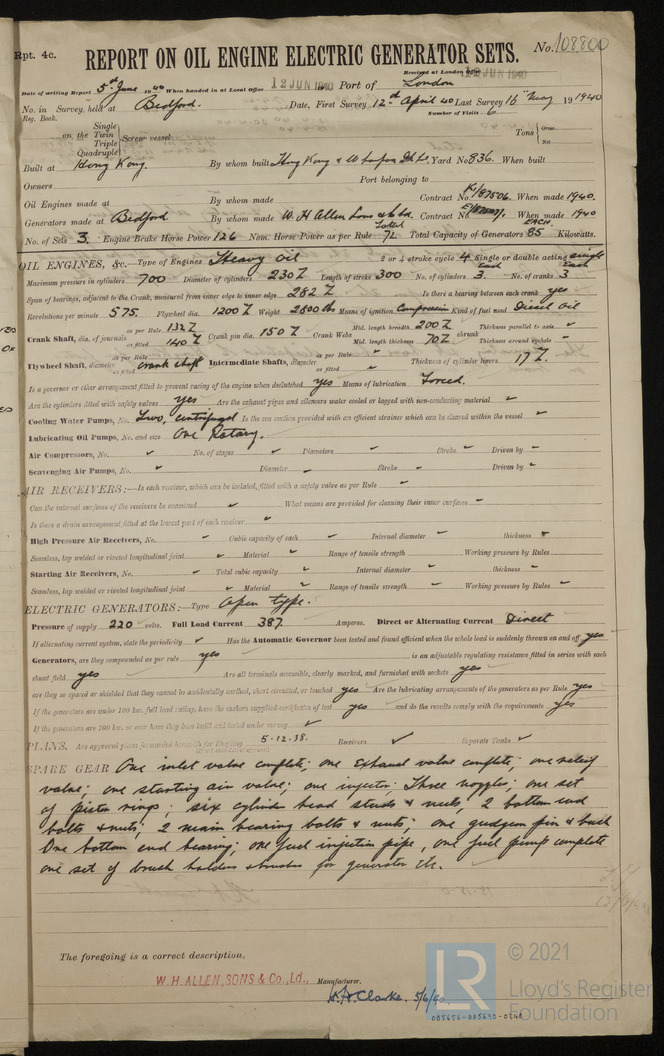 Rpt. 4c.
REPORT ON OIL ENGINE ELECTRIC GENERATOR SETS.
No. 108800
Received at London Office 12 JUN 1940
Date of writing Report 5th June 1940 When handed in at Local Office 12 JUN 1940 Port of London
No. in Survey held at Bedford. Date, First Survey 12th April 40 Last Survey 16th May 1940
Reg. Book. Number of Visits 6
on the Single Twin Triple Quadruple Screw vessel Tons Gross Net
Built at Hong Kong. By whom built Hong Kong & Whampoa Dk Co. Yard No. 836. When built
Owners Port belonging to
Oil Engines made at By whom made Contract No. K/87506. When made 1940.
Generators made at Bedford By whom made W. H Allen Sons & Co Ld. Contract No. When made 1940
No. of Sets 3. Engine Brake Horse Power 126 Nom. Horse Power as per Rule 72 Total Capacity of Generators 85 EACH. Kilowatts.
OIL ENGINES, &c. Type of Engines Heavy Oil 2 or 4 stroke cycle 4 Single or double acting single
Maximum pressure in cylinders 700 Diameter of cylinders 230 Length of stroke 300 No. of cylinders 3. No. of cranks 3
Span of bearings, adjacent to the Crank, measured from inner edge to inner edge 282 Is there a bearing between each crank yes
Revolutions per minute 575. Flywheel dia. 1200 Weight 2800 lbs Means of ignition Compression Kind of fuel used Diesel Oil
Crank Shaft, dia. of journals as per Rule 132 as fitted 140 Crank pin dia. 150 Crank Webs Mid. length breadth 200 Mid. length thickness 70 shrunk Thickness parallel to axis Thickness around eyehole
Flywheel Shaft, diameter as per Rule as fitted crank shaft Intermediate Shafts, diameter as per Rule as fitted Thickness of cylinder liners 17
Is a governor or other arrangement fitted to prevent racing of the engine when declutched yes Means of lubrication Forced.
Are the cylinders fitted with safety valves yes Are the exhaust pipes and silencers water cooled or lagged with non-conducting material
Cooling Water Pumps, No. Two, centrifugal Is the sea suction provided with an efficient strainer which can be cleared within the vessel
Lubricating Oil Pumps, No. and size One Rotary.
Air Compressors, No. No. of stages Diameters Stroke Driven by
Scavenging Air Pumps, No. Diameter Stroke Driven by
AIR RECEIVERS:—Is each receiver, which can be isolated, fitted with a safety valve as per Rule
Can the internal surfaces of the receivers be examined What means are provided for cleaning their inner surfaces
Is there a drain arrangement fitted at the lowest part of each receiver
High Pressure Air Receivers, No. Cubic capacity of each Internal diameter thickness
Seamless, lap welded or riveted longitudinal joint Material Range of tensile strength Working pressure by Rules
Starting Air Receivers, No. Total cubic capacity Internal diameter thickness
Seamless, lap welded or riveted longitudinal joint Material Range of tensile strength Working pressure by Rules
ELECTRIC GENERATORS:—Type Open type.
Pressure of supply 220 volts. Full Load Current 387. Amperes. Direct or Alternating Current Direct
If alternating current system, state the periodicity Has the Automatic Governor been tested and found efficient when the whole load is suddenly thrown on and off yes
Generators, are they compounded as per rule yes is an adjustable regulating resistance fitted in series with each
shunt field yes Are all terminals accessible, clearly marked, and furnished with sockets yes
are they so spaced or shielded that they cannot be accidentally earthed, short circuited, or touched yes Are the lubricating arrangements of the generators as per Rule yes
If the generators are under 100 kw. full load rating, have the makers supplied certificates of test yes and do the results comply with the requirements yes
If the generators are 100 kw. or over have they been built and tested under survey
PLANS. Are approved plans forwarded herewith for Shafting 5.12.38. Receivers Separate Tanks
SPARE GEAR One inlet valve complete; one Exhaust valve complete; one relief
valve; one starting air valve; one injector; three nozzles; one set
of piston rings; six cylinder head studs & nuts, 2 bottom end
bolts & nuts; 2 main bearing bolts & nuts; one gudgeon pin & bush
One bottom end bearing; one fuel injection pipe, one fuel pump complete
one set of brush holders & brushes for generator Etc.
The foregoing is a correct description.
W.H.ALLEN, SONS & Co., Ld., Manufacturer.
W. A. Clarke. 5/6/40.
LR
© 2021
Lloyd's Register
Foundation
005656-005690-0248